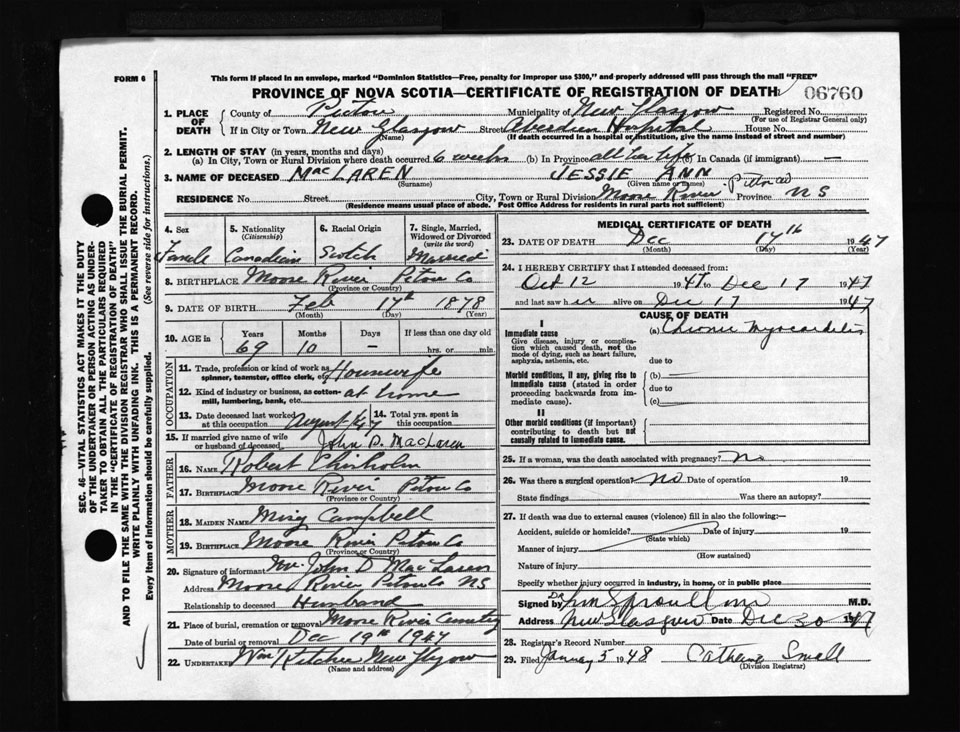 FORM 6
This form if placed in an envelope, marked "Dominion Statistics—Free, penalty for improper use $300," and properly addressed will pass through the mail "FREE"
PROVINCE OF NOVA SCOTIA—CERTIFICATE OF REGISTRATION OF DEATH 06760
1. PLACE OF DEATH
County of Pictou Municipality of New Glasgow Registered No.
(For use of Registrar General only)
If in City or Town New Glasgow Street Aberdeen Hospital House No.
(Name) (If death occurred in a hospital or institution, give the name instead of street and number)
2. LENGTH OF STAY (in years, months and days)
(a) In City, Town or Rural Division where death occurred 6 weeks (b) In Province all her life (c) In Canada (if immigrant) —
3. NAME OF DECEASED MacLAREN JESSIE ANN
(Surname) (Given name or names)
RESIDENCE No. Street City, Town or Rural Division Moose River Pictou Co Province N S
(Residence means usual place of abode. Post Office Address for residents in rural parts not sufficient)
4. Sex 5. Nationality (Citizenship) 6. Racial Origin 7. Single, Married, Widowed or Divorced (write the word)
Female Canadian Scotch Married
8. BIRTHPLACE Moose River Pictou Co
(Province or Country)
9. DATE OF BIRTH Feb 17th 1878
(Month) (Day) (Year)
10. AGE in Years Months Days If less than one day old
69 10 — hrs. or min.
OCCUPATION
11. Trade, profession or kind of work as spinner, teamster, office clerk, etc. Housewife
12. Kind of industry or business, as cotton-mill, lumbering, bank, etc. at home
13. Date deceased last worked at this occupation August 1947 14. Total yrs. spent in this occupation
15. If married give name of wife or husband of deceased John D. MacLaren
FATHER
16. NAME Robert Chisholm
17. BIRTHPLACE Moose River Pictou Co
(Province or Country)
MOTHER
18. MAIDEN NAME Campbell
19. BIRTHPLACE Moose River Pictou Co
(Province or Country)
20. Signature of informant Mr. John D MacLaren
Address Moose River Pictou Co NS
Relationship to deceased Husband
21. Place of burial, cremation or removal Moose River Cemetery
Date of burial or removal Dec 19th 1947
22. UNDERTAKER Wm Ritchie New Glasgow
(Name and address)
MEDICAL CERTIFICATE OF DEATH
23. DATE OF DEATH Dec 17th 1947
(Month) (Day) (Year)
24. I HEREBY CERTIFY that I attended deceased from:
Oct 12 1947 to Dec 17 1947
and last saw her alive on Dec 17 1947
CAUSE OF DEATH
I
Immediate cause (a) Chronic Myocarditis
Give disease, injury or complication which caused death, not the mode of dying, such as heart failure, asphyxia, asthenia, etc.
due to
Morbid conditions, if any, giving rise to immediate cause (stated in order proceeding backwards from immediate cause). (b) —
due to
(c)
II
Other morbid conditions (if important) contributing to death but not causally related to immediate cause.
25. If a woman, was the death associated with pregnancy? No
26. Was there a surgical operation? No Date of operation 19
State findings Was there an autopsy?
27. If death was due to external causes (violence) fill in also the following:—
Accident, suicide or homicide? Date of injury 19
(State which)
Manner of injury
(How sustained)
Nature of injury
Specify whether injury occurred in industry, in home, or in public place
Signed by Dr Sproull M.D.
Address New Glasgow Date Dec 30 1947
28. Registrar's Record Number
29. Filed January 5 1948 Catherine Small
(Division Registrar)
SEC. 46—VITAL STATISTICS ACT MAKES IT THE DUTY
OF THE UNDERTAKER OR PERSON ACTING AS UNDER-
TAKER TO OBTAIN ALL THE PARTICULARS REQUIRED
IN THE "CERTIFICATE OF REGISTRATION OF DEATH"
AND TO FILE THE SAME WITH THE DIVISION REGISTRAR WHO SHALL ISSUE THE BURIAL PERMIT.
WRITE PLAINLY WITH UNFADING INK. THIS IS A PERMANENT RECORD.
Every item of information should be carefully supplied. (See reverse side for instructions.)